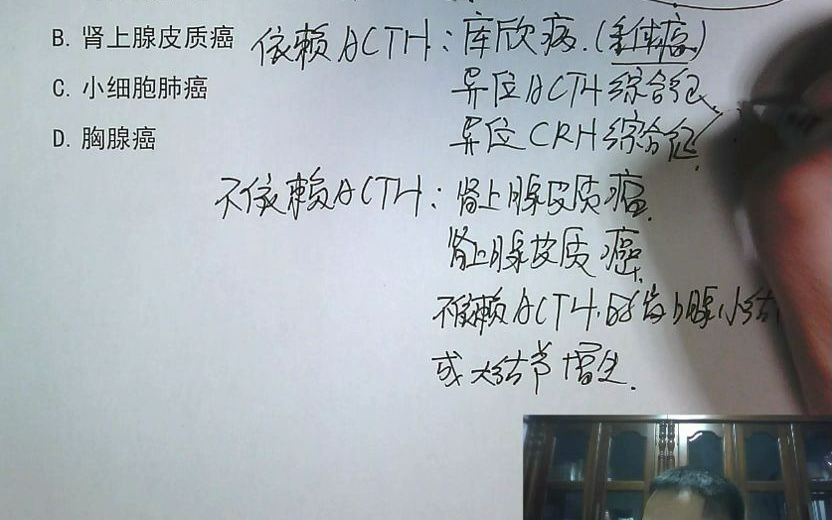 B. 肾上腺皮质癌 依赖ACTH：库欣病.(垂体瘤)
C. 小细胞肺癌 异位ACTH综合征
D. 胸腺癌 异位CRH综合征
不依赖ACTH：肾上腺皮质瘤.
肾上腺皮质癌.
不依赖ACTH.肾上腺小结
或大结节增生.